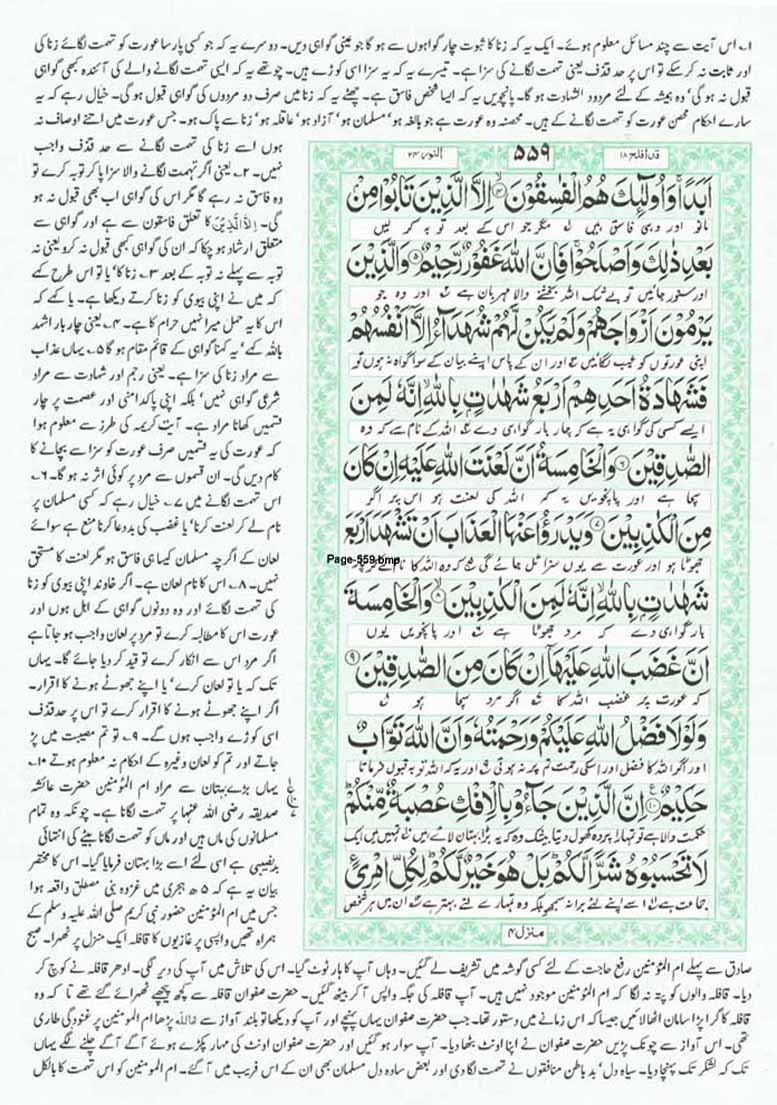 ۱۔ اس آیت سے چند مسائل معلوم ہوئے۔ ایک یہ کہ زنا کا ثبوت چار گواہوں سے ہو گا جو عینی گواہی دیں۔ دوسرے یہ کہ جو کسی پارسا عورت کو تہمت لگائے زنا کی
اور ثابت نہ کرسکے تو اس پر حد قذف یعنی تہمت لگانے کی سزا ہے۔ تیسرے یہ کہ یہ سزا اسی کوڑے ہیں۔ چوتھے یہ کہ ایسی تہمت لگانے والے کی آئندہ کبھی گواہی
قبول نہ ہو گی' وہ ہمیشہ کے لئے مردود الشہادت ہو گا۔ پانچویں یہ کہ ایسا شخص فاسق ہے۔ چھٹے یہ کہ زنا میں صرف دو مردوں کی گواہی قبول ہو گی۔ خیال رہے کہ یہ
سارے احکام محصن عورت کو تہمت لگانے کے ہیں۔ محصنہ وہ عورت ہے جو بالغہ ہو' مسلمان ہو' آزاد ہو' عاقلہ ہو' زنا سے پاک ہو۔ جس عورت میں اتنے اوصاف نہ
ہوں اسے زنا کی تہمت لگانے سے حد قذف واجب
نہیں۔ ۲۔ یعنی اگر تہمت لگانے والا سزا پا کر توبہ کرے تو
وہ فاسق نہ رہے گا مگر اس کی گواہی اب بھی قبول نہ ہو
گی۔ اِلَّا الَّذِیْنَ کا تعلق فاسقون سے ہے اور گواہی سے
متعلق ارشاد ہو چکا کہ ان کی گواہی کبھی قبول نہ کرو یعنی نہ
توبہ سے پہلے نہ توبہ کے بعد ۳۔ زنا کا' یا تو اس طرح کہے
کہ میں نے اپنی بیوی کو زنا کرتے دیکھا ہے۔ یا کہے کہ
اس کا یہ حمل میرا نہیں حرام کا ہے۔ ۴۔ یعنی چار بار اشہد
باللہ کہے' یہ کہنا گواہی کے قائم مقام ہو گا ۵۔ یہاں عذاب
سے مراد زنا کی سزا ہے۔ یعنی رجم اور شہادت سے مراد
شرعی گواہی نہیں' بلکہ اپنی پاکدامنی اور عصمت پر چار
قسمیں کھانا مراد ہے۔ آیت کریمہ کی طرز سے معلوم ہوا
کہ عورت کی یہ قسمیں صرف عورت کو سزا سے بچانے کا
کام دیں گی۔ ان قسموں سے مرد پر کوئی اثر نہ ہو گا۔ ۶۔
اس تہمت لگانے میں ۷۔ خیال رہے کہ کسی مسلمان پر
نام لے کر لعنت کرنا' یا غضب کی بددعا کرنا منع ہے سوائے
لعان کے اگرچہ مسلمان کیسا ہی فاسق ہو مگر لعنت کا مستحق
نہیں۔ ۸۔ اس کا نام لعان ہے۔ اگر خاوند اپنی بیوی کو زنا
کی تہمت لگائے اور وہ دونوں گواہی کے اہل ہوں اور
عورت اس کا مطالبہ کرے تو مرد پر لعان واجب ہو جاتا ہے
اگر مرد اس سے انکار کرے تو قید کر دیا جائے گا۔ یہاں
تک کہ یا تو لعان کرے' یا اپنے جھوٹے ہونے کا اقرار۔
اگر اپنے جھوٹے ہونے کا اقرار کرے تو اس پر حد قذف
اسی کوڑے واجب ہوں گے۔ ۹۔ تو تم مصیبت میں پڑ
جاتے اور تم کو لعان وغیرہ کے احکام نہ معلوم ہوتے ۱۰۔
یہاں بڑے بہتان سے مراد ام المؤمنین حضرت عائشہ
صدیقہ رضی اللہ عنہا پر تہمت لگانا ہے۔ چونکہ وہ تمام
مسلمانوں کی ماں ہیں اور ماں کو تہمت لگانا بیٹے کی انتہائی
بدنصیبی ہے اسی لئے اسے بڑا بہتان فرمایا گیا۔ اس کا مختصر
بیان یہ ہے کہ ۵ ھ ہجری میں غزوہ بنی مصطلق واقعہ ہوا
جس میں ام المؤمنین حضور نبی کریم صلی اللہ علیہ وسلم کے
ہمراہ تھیں واپسی پر غازیوں کا قافلہ ایک منزل پر ٹھہرا۔ صبح
قد افلح ۱۸
۵۵۹
النور ۲۴
اَبَدًا ۚ وَاُولٰٓئِكَ هُمُ الْفٰسِقُوْنَ ۙ اِلَّا الَّذِيْنَ تَابُوْا مِنْۢ
مانو اور وہی فاسق ہیں مگر جو اس کے بعد توبہ کر لیں
بَعْدِ ذٰلِكَ وَاَصْلَحُوْا ۚ فَاِنَّ اللّٰهَ غَفُوْرٌ رَّحِيْمٌ وَالَّذِيْنَ
اور سنور جائیں تو بے شک اللہ بخشنے والا مہربان ہے اور وہ جو
يَرْمُوْنَ اَزْوَاجَهُمْ وَلَمْ يَكُنْ لَّهُمْ شُهَدَآءُ اِلَّآ اَنْفُسُهُمْ
اپنی عورتوں کو عیب لگائیں اور ان کے پاس اپنے بیان کے سوا گواہ نہ ہوں تو
فَشَهَادَةُ اَحَدِهِمْ اَرْبَعُ شَهٰدٰتٍۢ بِاللّٰهِ ۙ اِنَّهٗ لَمِنَ
ایسے کسی کی گواہی یہ ہے کہ چار بار گواہی دے اللہ کے نام سے کہ وہ
الصّٰدِقِيْنَ وَالْخَامِسَةُ اَنَّ لَعْنَتَ اللّٰهِ عَلَيْهِ اِنْ كَانَ
سچا ہے اور پانچویں یہ کہ اللہ کی لعنت ہو اس پر اگر
مِنَ الْكٰذِبِيْنَ وَيَدْرَؤُا عَنْهَا الْعَذَابَ اَنْ تَشْهَدَ اَرْبَعَ
جھوٹا ہو اور عورت سے یوں سزا ٹل جائے گی کہ وہ اللہ کا نام لے کر چار
Page-559.bmp
شَهٰدٰتٍۢ بِاللّٰهِ ۙ اِنَّهٗ لَمِنَ الْكٰذِبِيْنَ ۙ وَالْخَامِسَةَ
بار گواہی دے کہ مرد جھوٹا ہے اور پانچویں یوں
اَنَّ غَضَبَ اللّٰهِ عَلَيْهَآ اِنْ كَانَ مِنَ الصّٰدِقِيْنَ ۹
کہ عورت پر غضب اللہ کا اگر مرد سچا ہو
وَلَوْلَا فَضْلُ اللّٰهِ عَلَيْكُمْ وَرَحْمَتُهٗ وَاَنَّ اللّٰهَ تَوَّابٌ
اور اگر اللہ کا فضل اور اسکی رحمت تم پر نہ ہوتی اور یہ کہ اللہ توبہ قبول فرماتا
حَكِيْمٌ ۱۰ اِنَّ الَّذِيْنَ جَآءُوْ بِالْاِفْكِ عُصْبَةٌ مِّنْكُمْ ؕ
حکمت والا ہے تو تمہارا پردہ کھول دیتا بیشک وہ کہ یہ بڑا بہتان لائے ہیں تمہیں میں ایک
لَا تَحْسَبُوْهُ شَرًّا لَّكُمْ ؕ بَلْ هُوَ خَيْرٌ لَّكُمْ ؕ لِكُلِّ امْرِئٍ
جماعت ہے اسے اپنے لئے برا نہ سمجھو بلکہ وہ تمہارے لئے بہتر ہے ان میں ہر شخص
منزل ۴
صادق سے پہلے ام المؤمنین رفع حاجت کے لئے کسی گوشہ میں تشریف لے گئیں۔ وہاں آپ کا ہار ٹوٹ گیا۔ اس کی تلاش میں آپ کی دیر لگی۔ ادھر قافلہ نے کوچ کر
دیا۔ قافلہ والوں کو پتہ نہ لگا کہ ام المؤمنین موجود نہیں ہیں۔ آپ قافلہ کی جگہ واپس آ کر بیٹھ گئیں۔ حضرت صفوان قافلہ سے کچھ پیچھے ٹھہرائے گئے تھے تا کہ وہ
قافلہ کا گرا پڑا سامان اٹھالائیں جیسا کہ اس زمانے میں دستور تھا۔ جب حضرت صفوان یہاں پہنچے اور آپ کو دیکھا تو بلند آواز سے اناللہ پڑھا ام المؤمنین پر غنودگی طاری
تھی۔ اس آواز سے چونک پڑیں حضرت صفوان نے اپنا اونٹ بٹھا دیا۔ آپ سوار ہو گئیں اور حضرت صفوان اونٹ کی مہار پکڑے ہوئے آگے آگے چلنے لگے یہاں
تک کہ لشکر تک پہنچا دیا۔ سیاہ دل' بد باطن منافقوں نے تہمت لگا دی اور بعض سادہ دل مسلمان بھی ان کے اس فریب میں آ گئے۔ ام المؤمنین کو اس تہمت کا بالکل